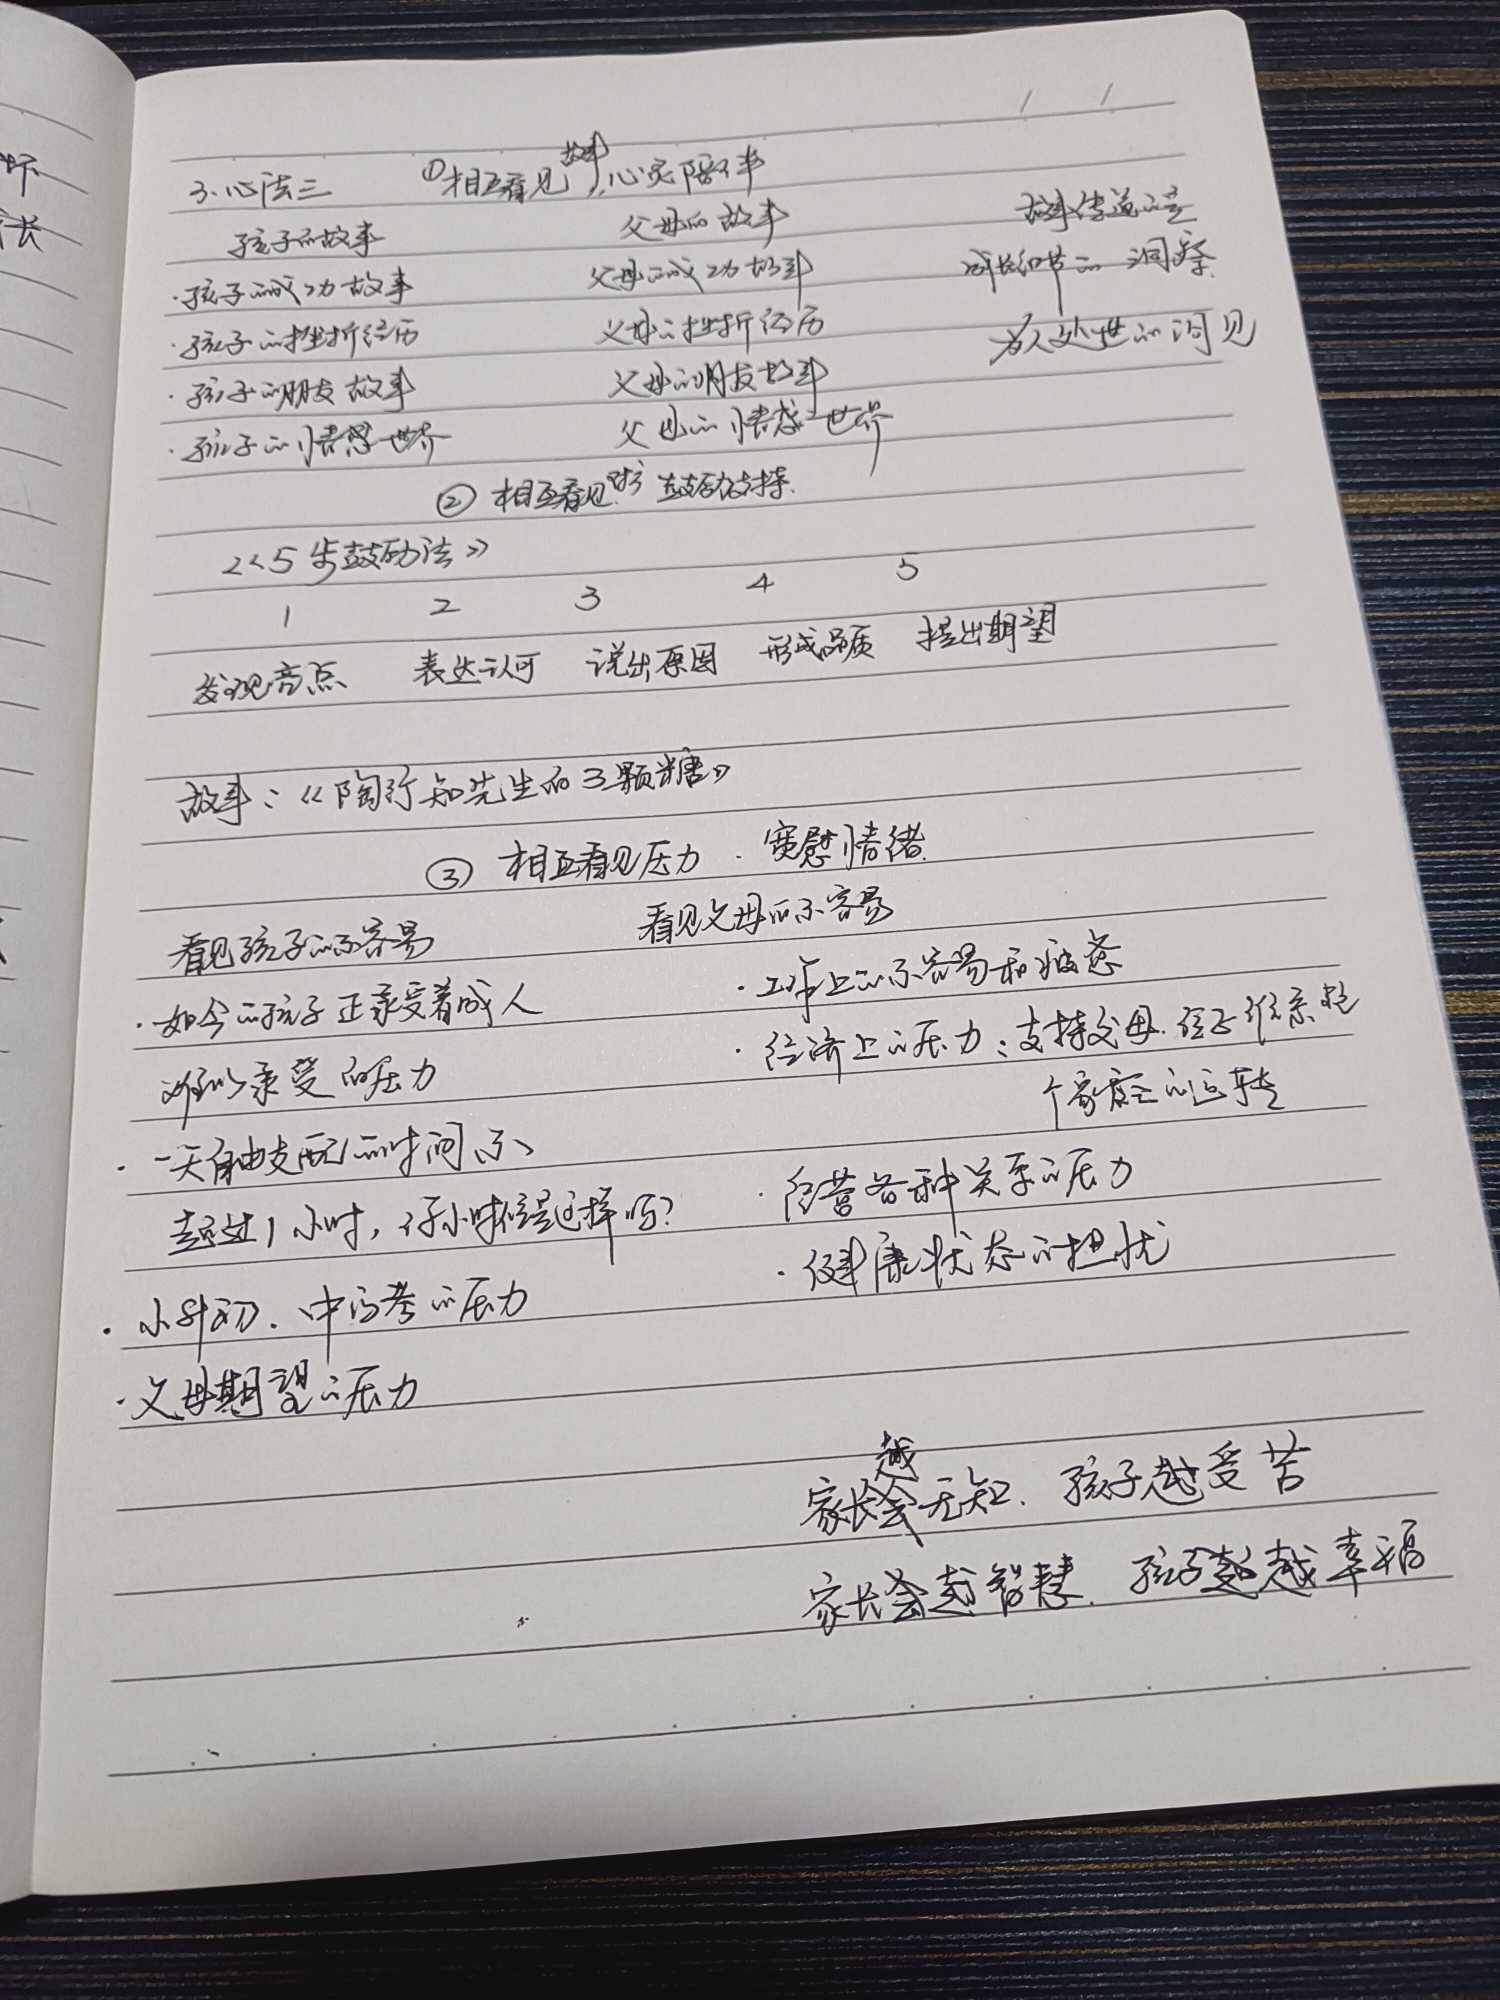 3.心法三 ①相互看见故事,心灵陪
孩子的故事 父母的故事 故事传道的是
·孩子的成功故事 父母的成功故事 成长细节的洞察
·孩子的挫折经历 父母的挫折经历 为人处世的洞见
·孩子的朋友故事 父母的朋友故事
·孩子的情感世界 父母的情感世界
② 相互看见 鼓励支持.
《5步鼓励法》
1 2 3 4 5
发现亮点 表达认可 说出原因 形成品质 提出期望
故事:《陶行知先生的3颗糖》
③ 相互看见压力.宽慰情绪.
看见孩子的不容易 看见父母的不容易
·如今的孩子正承受着成人 ·工作上的不容易和疲惫
难以承受的压力 ·经济上的压力:支持父母.孩子维系整
个家庭的运转
·一天自由支配的时间不
超过1小时,你小时候是这样吗? ·经营各种关系的压力
·小升初.中高考的压力 ·健康状态的担忧
·父母期望的压力
家长越无知.孩子越受苦
家长越智慧.孩子越幸福